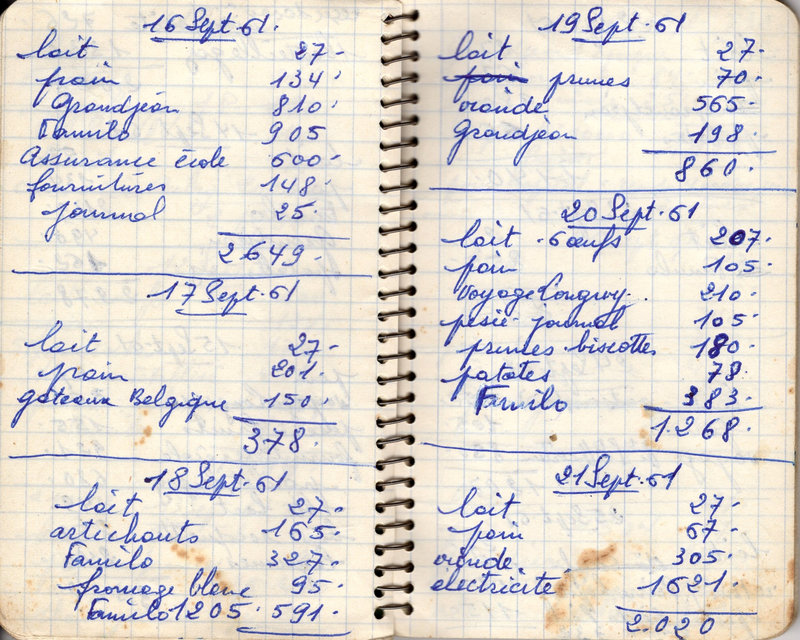 16 Sept. 61.
lait 27-
pain 134-
Grandjean 810-
Familo 905
Assurance école 600-
fournitures 148-
journal 25-
2649-
17 Sept. 61
lait 27-
pain 201.
gateaux Belgique 150-
378.
18 Sept. 61
lait 27-
artichauts 165-
Familo 327-
fromage blanc 95-
Familo 1205. 591-
19 Sept. 61
lait 27-
pain prunes 70-
viande 565-
Grandjean 198-
860.
20 Sept. 61
lait - 6 œufs 207-
pain 105-
Voyage Longwy. 210-
journal 105-
prunes - biscottes 180-
patates 78.
Familo 383-
1.268-
21 Sept. 61
lait 27-
pain 67-
viande. 305-
electricité 1621.
2.020